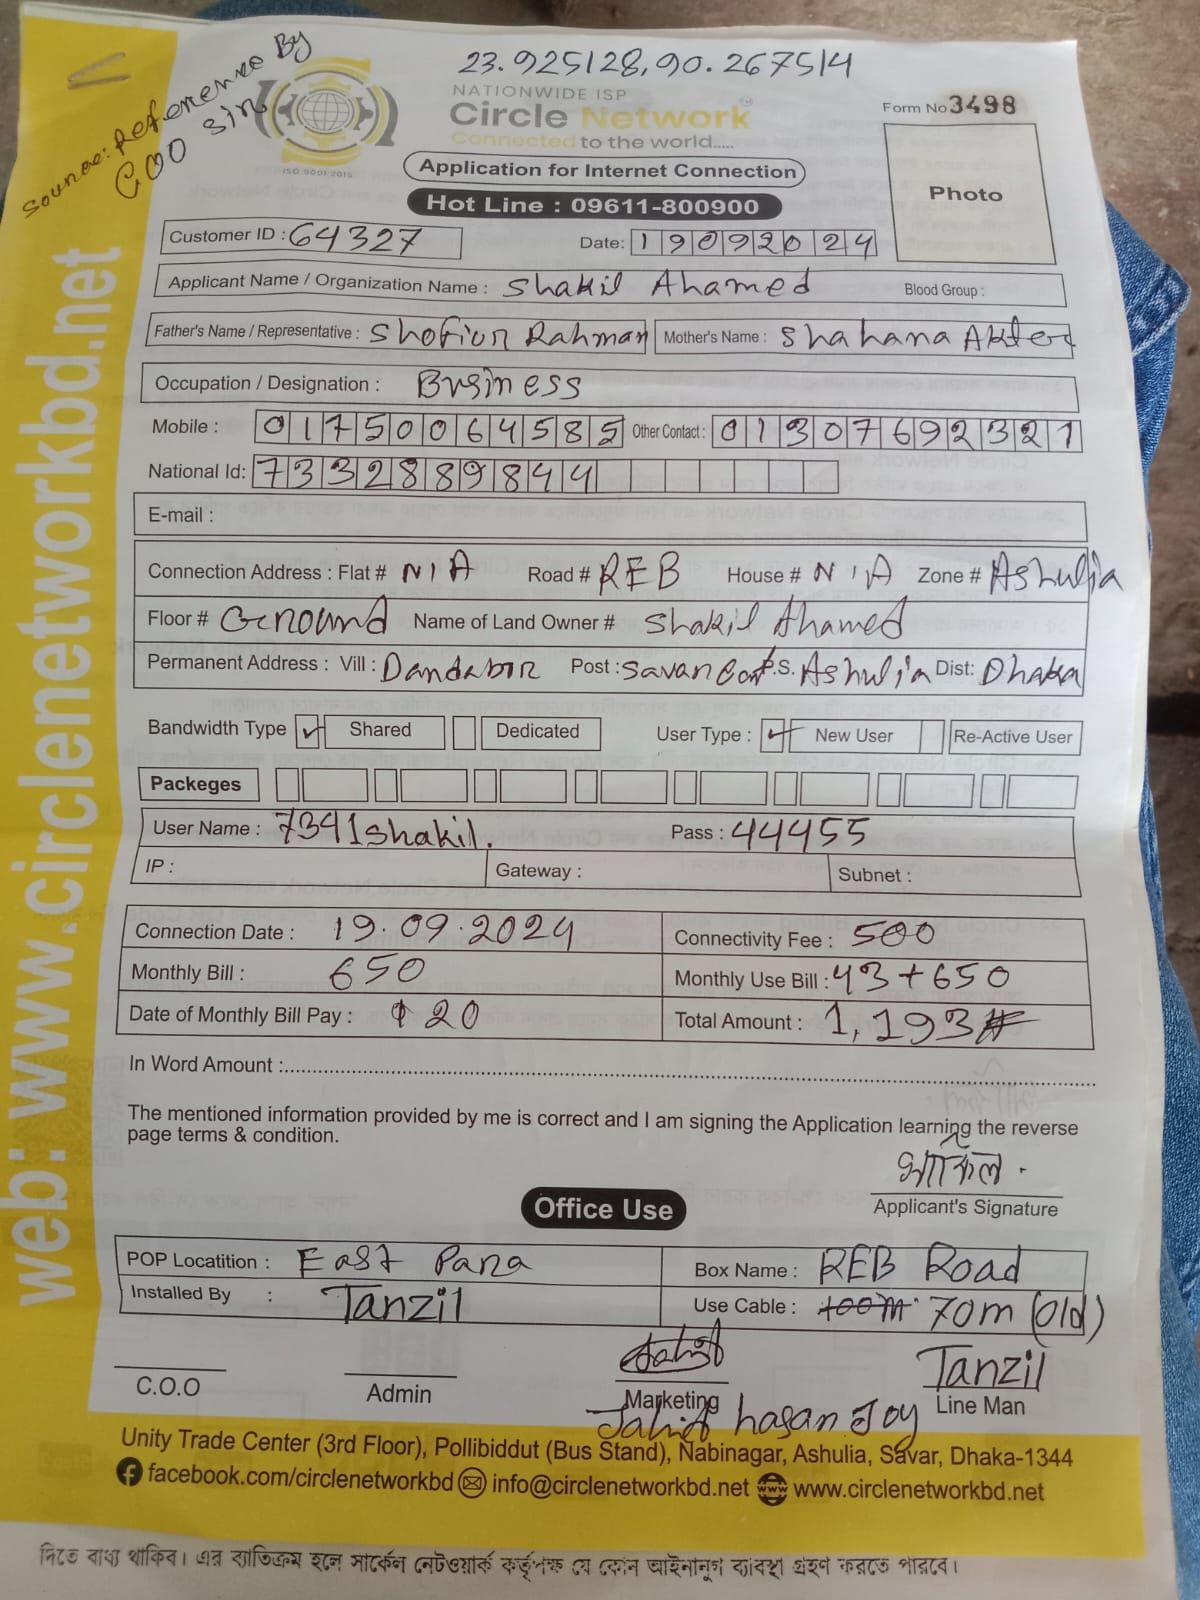 Source: Reference By
COO Sir
23.925128, 90.267514
NATIONWIDE ISP
Circle Network
Connected to the world.....
ISO 9001:2015
Form No 3498
Application for Internet Connection
Hot Line : 09611-800900
Photo
Customer ID : 64327 Date: 19092024
Applicant Name / Organization Name : Shakil Ahamed Blood Group :
Father's Name / Representative : Shofiur Rahman Mother's Name : Shahana Akter
Occupation / Designation : Business
Mobile : 01750064585 Other Contact : 01307692321
National Id: 7332889844
E-mail :
Connection Address : Flat # N/A Road # REB House # N/A Zone # Ashulia
Floor # Ground Name of Land Owner # Shakil Ahamed
Permanent Address : Vill : Dandabor Post : Savar Cant P.S. Ashulia Dist: Dhaka
Bandwidth Type ✓ Shared Dedicated User Type : ✓ New User Re-Active User
Packeges
User Name : 7341shakil. Pass : 44455
IP : Gateway : Subnet :
Connection Date : 19.09.2024 Connectivity Fee : 500
Monthly Bill : 650 Monthly Use Bill : 43+650
Date of Monthly Bill Pay : 20 Total Amount : 1,193
In Word Amount :
The mentioned information provided by me is correct and I am signing the Application learning the reverse
page terms & condition.
শাকিল
Applicant's Signature
Office Use
POP Locatition : East Para Box Name : REB Road
Installed By : Tanzil Use Cable : 100m 70m (old)
C.O.O Admin Marketing Tanzil Line Man
Jahid hasan Joy
Unity Trade Center (3rd Floor), Pollibiddut (Bus Stand), Nabinagar, Ashulia, Savar, Dhaka-1344
facebook.com/circlenetworkbd info@circlenetworkbd.net www.circlenetworkbd.net
web: www.circlenetworkbd.net
দিতে বাধ্য থাকিব। এর ব্যতিক্রম হলে সার্কেল নেটওয়ার্ক কর্তৃপক্ষ যে কোন আইনানুগ ব্যবস্থা গ্রহণ করতে পারবে।